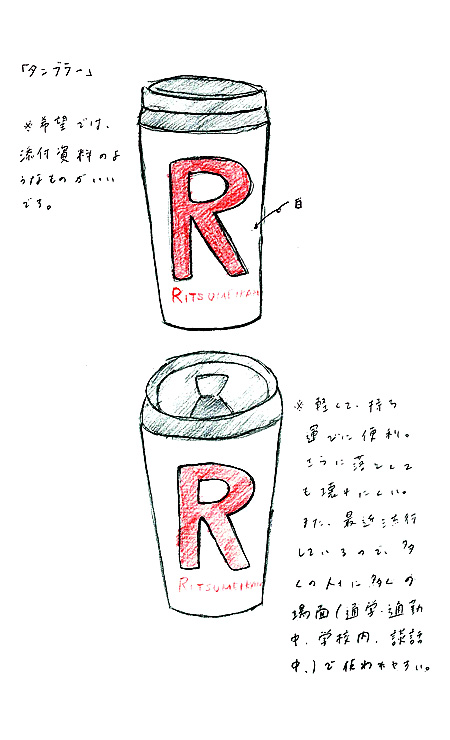 「タンブラー」
※希望では、
添付資料のよ
うなものがいい
です。
R
白
RITSUMEIKAN
※軽くて、持ち
運びに便利。
さらに落として
も壊れにくい。
また、最近流行
しているので、多
くの人に多くの
場面(通学・通勤
中、学校内、談話
中、)で使われやすい。
R
RITSUMEIKAN